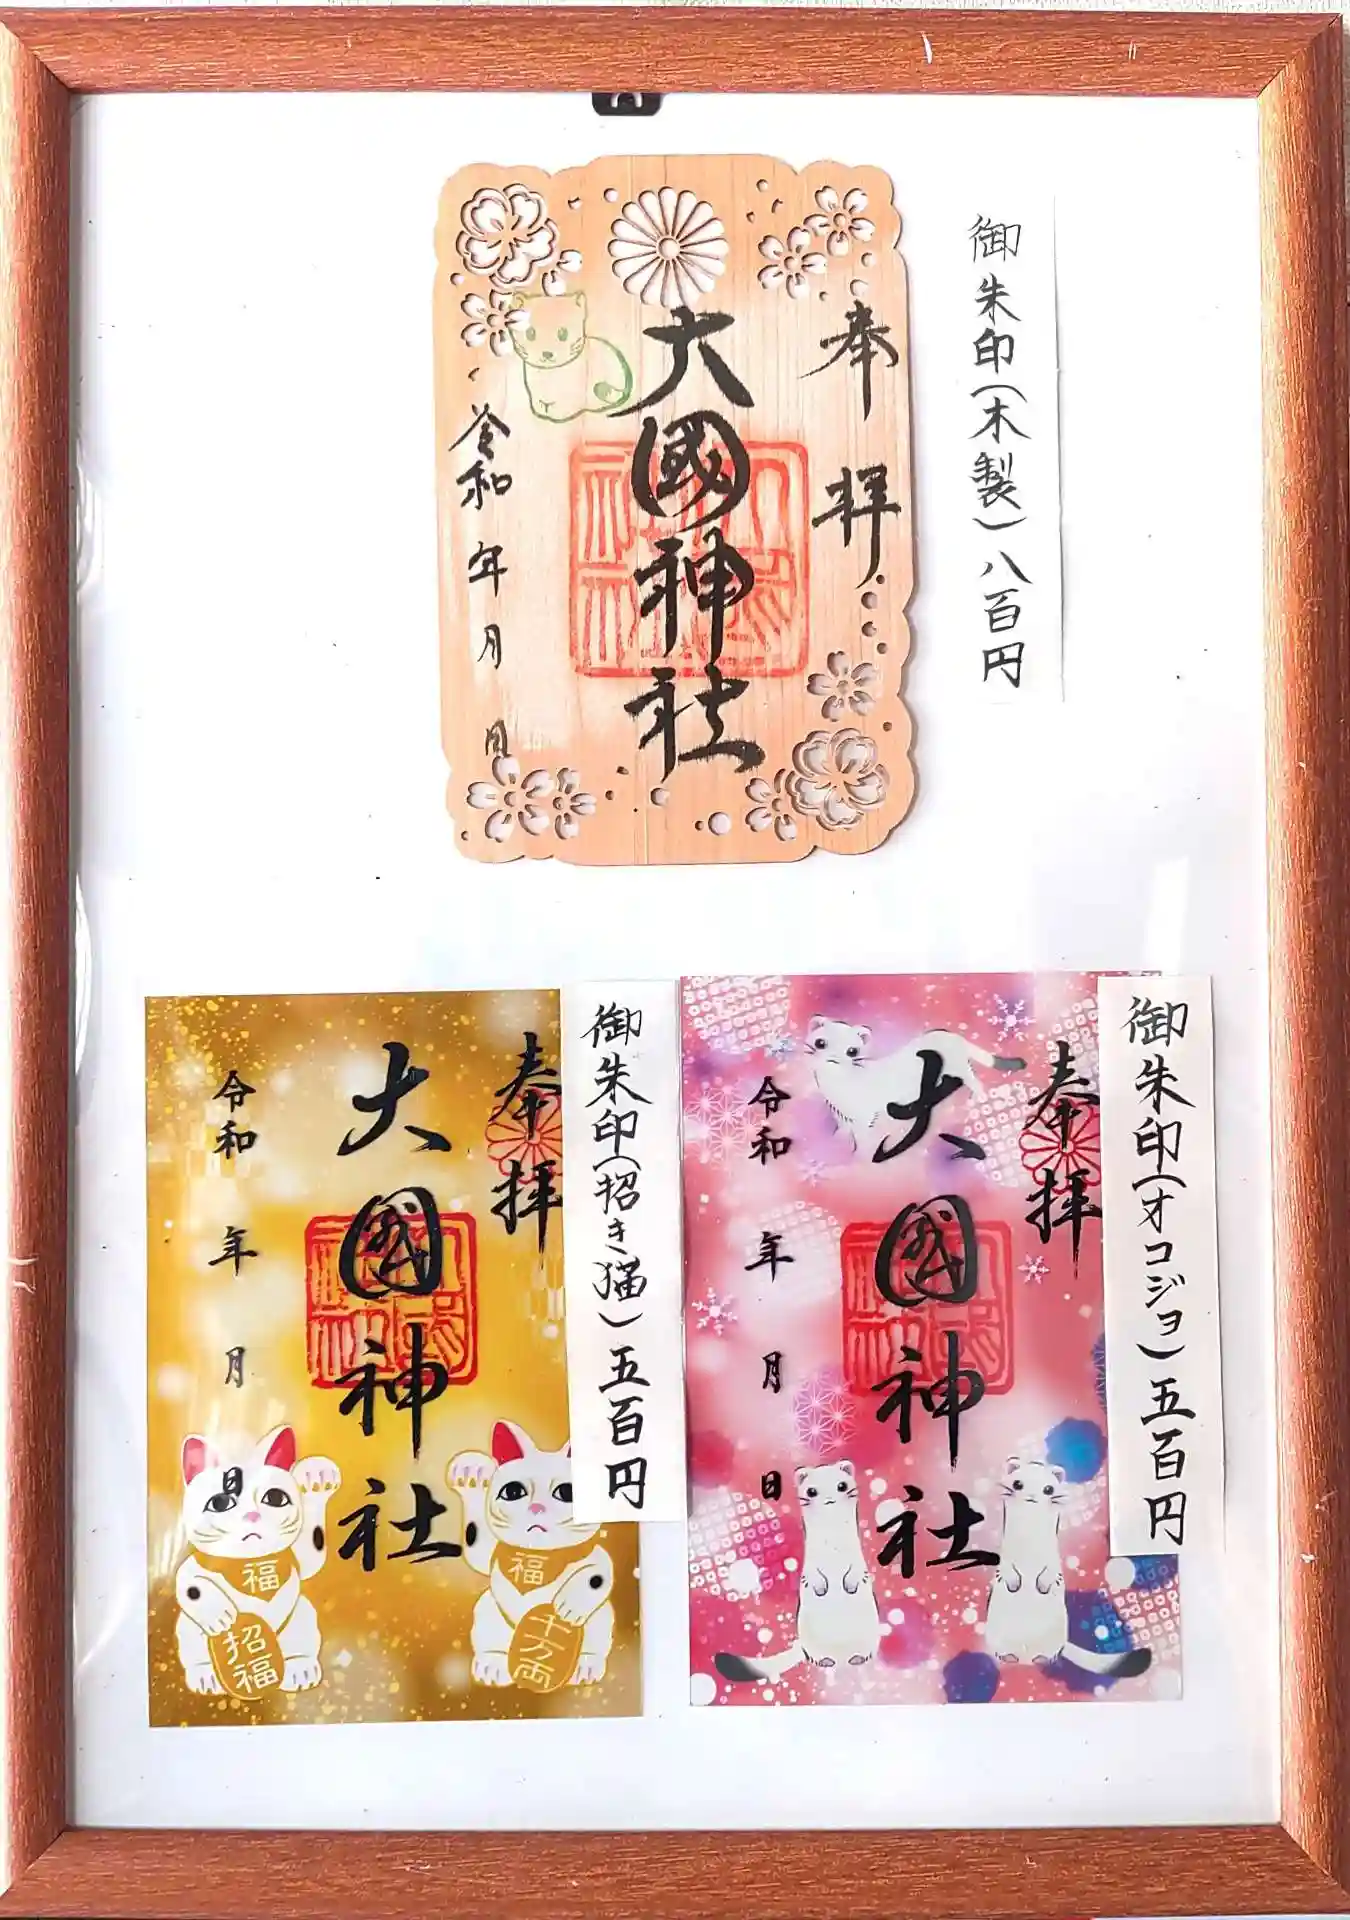 御朱印(木製)八百円
奉拝
大國神社
令和 年 月 日
御朱印(オコジョ)五百円
奉拝
大國神社
令和 年 月 日
御朱印(招き猫)五百円
奉拝
大國神社
令和 年 月 日
福
招福
福
千万両